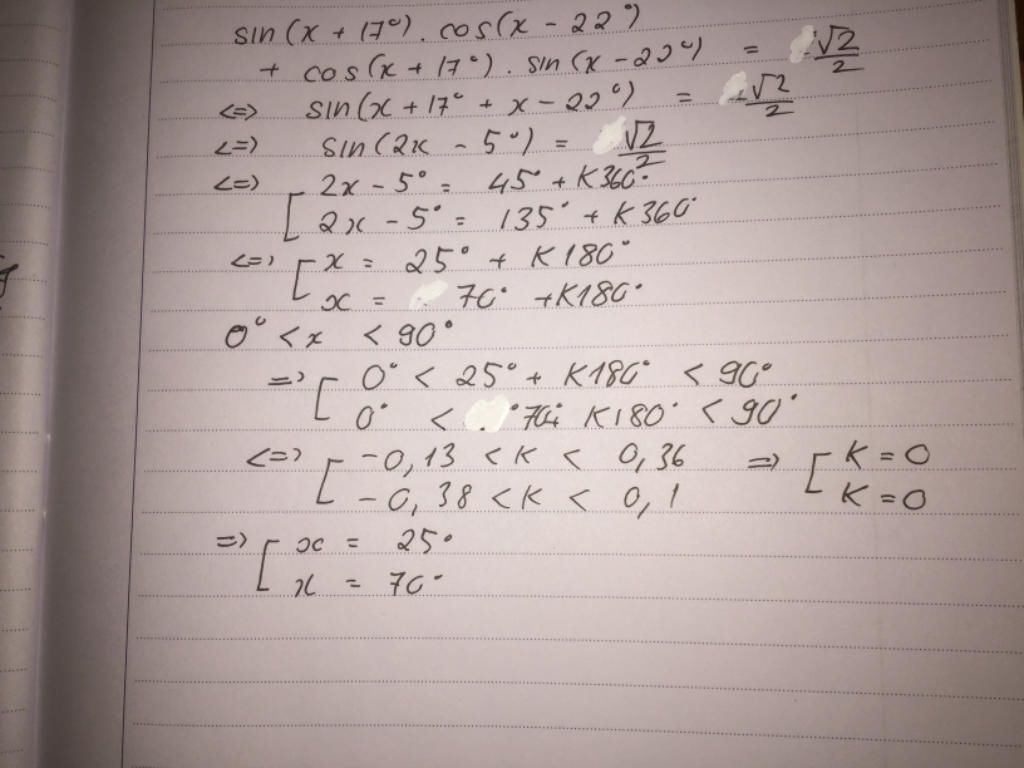 sin(x + 17°). cos(x - 22°)
+ cos(x + 17°). sin(x - 22°) = √2/2
<=> sin(x + 17° + x - 22°) = √2/2
<=> sin(2x - 5°) = √2/2
<=> [ 2x - 5° = 45° + K360°
2x - 5° = 135° + K360°
<=> [ x = 25° + K180°
x = 70° + K180°
0° < x < 90°
=> [ 0° < 25° + K180° < 90°
0° < 70+ K180° < 90°
<=> [ -0,13 < K < 0,36 => [ K = 0
-0,38 < K < 0,1 K = 0
=> [ x = 25°
x = 70°